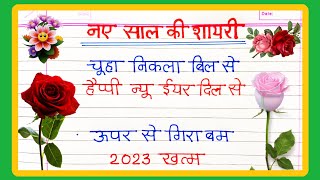 नए साल की शायरी
चूहा निकला बिल से
हैप्पी न्यू ईयर दिल से
ऊपर से गिरा बम
2023 खत्म